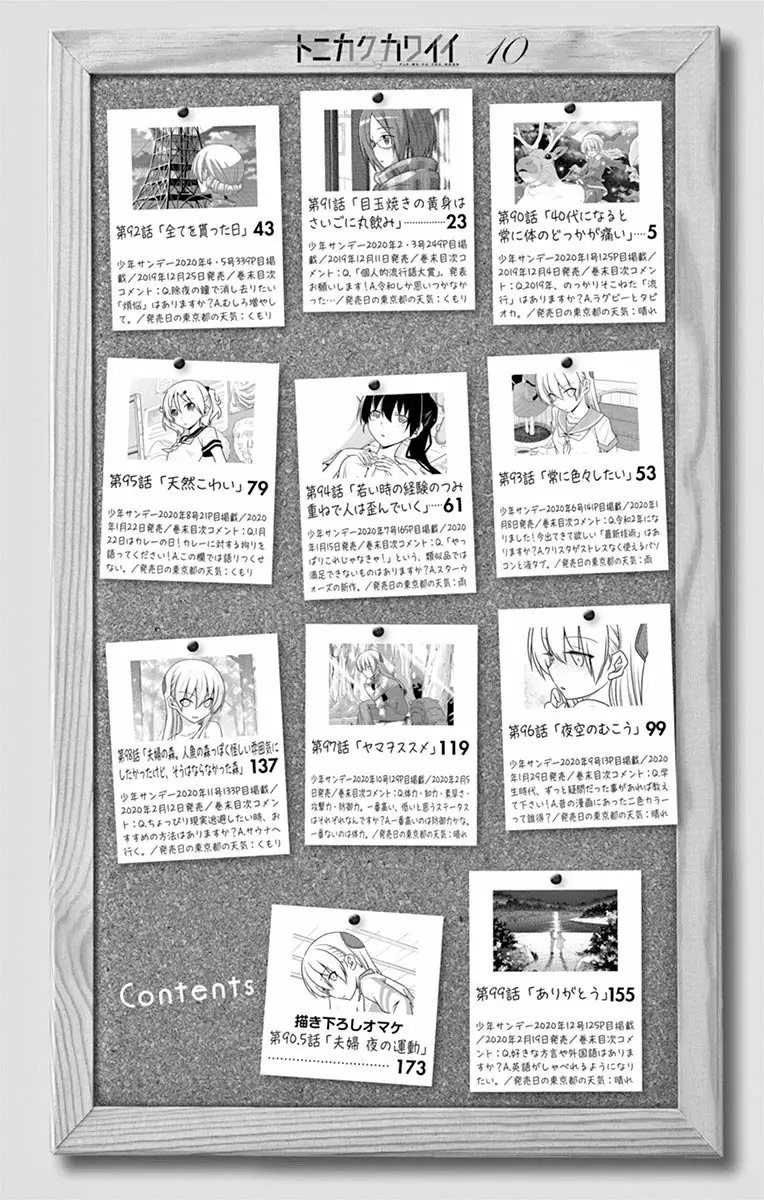 トニカクカワイイ 10
FLY ME TO THE MOON
第90話「40代になると
常に体のどっかが痛い」…5
少年サンデー2020年1号125P目掲
載/2019年12月4日発売/巻末目次
コメント:Q.2019年、のっかりそこねた「流
行」はありますか?A.ラグビーとタピ
オカ。/発売日の東京都の天気:晴れ
第91話「目玉焼きの黄身は
さいごに丸飲み」……………23
少年サンデー2020年2・3号249P目掲
載/2019年12月11日発売/巻末目次コ
メント:Q.「個人的流行語大賞」、発表
お願いします!A.令和しか思いつかなか
った…/発売日の東京都の天気:くもり
第92話「全てを貰った日」43
少年サンデー2020年4・5号339P目掲
載/2019年12月25日発売/巻末目次
コメント:Q.除夜の鐘で消し去りたい
「煩悩」はありますか?A.むしろ増やし
て。/発売日の東京都の天気:くもり
第93話「常に色々したい」53
少年サンデー2020年6号141P目掲載/2020年1
月8日発売/巻末目次コメント:Q.令和2年にな
りました!今出てきて欲しい「最新技術」はあ
りますか?A.クリスタがストレスなく使えるパソ
コンと液タブ。/発売日の東京都の天気:雨
第94話「若い時の経験のつみ
重ねで人は歪んでいく」……61
少年サンデー2020年7号165P目掲載/2020
年1月15日発売/巻末目次コメント:Q.「やっ
ぱりこれじゃなきゃ!」という、類似品では
満足できないものはありますか?A.スターウ
ォーズの新作。/発売日の東京都の天気:雨
第95話「天然こわい」79
少年サンデー2020年8号21P目掲載/2020
年1月22日発売/巻末目次コメント:Q.1月
22日はカレーの日!カレーに対する拘りを
語ってください!A.この欄では語りつくせ
ない。/発売日の東京都の天気:くもり
第96話「夜空のむこう」99
少年サンデー2020年9号13P目掲載/2020
年1月29日発売/巻末目次コメント:Q.学
生時代、ずっと疑問だった事があれば教え
て下さい!A.昔の漫画にあった二色カラー
って誰得?/発売日の東京都の天気:晴れ
第97話「ヤマヲススメ」119
少年サンデー2020年10号129P目掲載/2020年2月5
日発売/巻末目次コメント:Q.体力・知力・素早さ・
攻撃力・防御力。一番高い、低いと思うステータス
はそれぞれなんですか?A.一番高いのは防御力かな。
一番ないのは体力。/発売日の東京都の天気:晴れ
第98話「夫婦の森。人魚の森っぽく怪しい雰囲気に
したかったけど、そうはならなかった森」137
少年サンデー2020年11号133P目掲載/
2020年2月12日発売/巻末目次コメン
ト:Q.ちょっぴり現実逃避したい時、お
すすめの方法はありますか?A.サウナへ
行く。/発売日の東京都の天気:くもり
第99話「ありがとう」155
少年サンデー2020年12号125P目掲載
/2020年2月19日発売/巻末目次コメ
ント:Q.好きな方言や外国語はありま
すか?A.英語がしゃべれるようになり
たい。/発売日の東京都の天気:晴れ
描き下ろしオマケ
第90.5話「夫婦 夜の運動」
……………………173
Contents